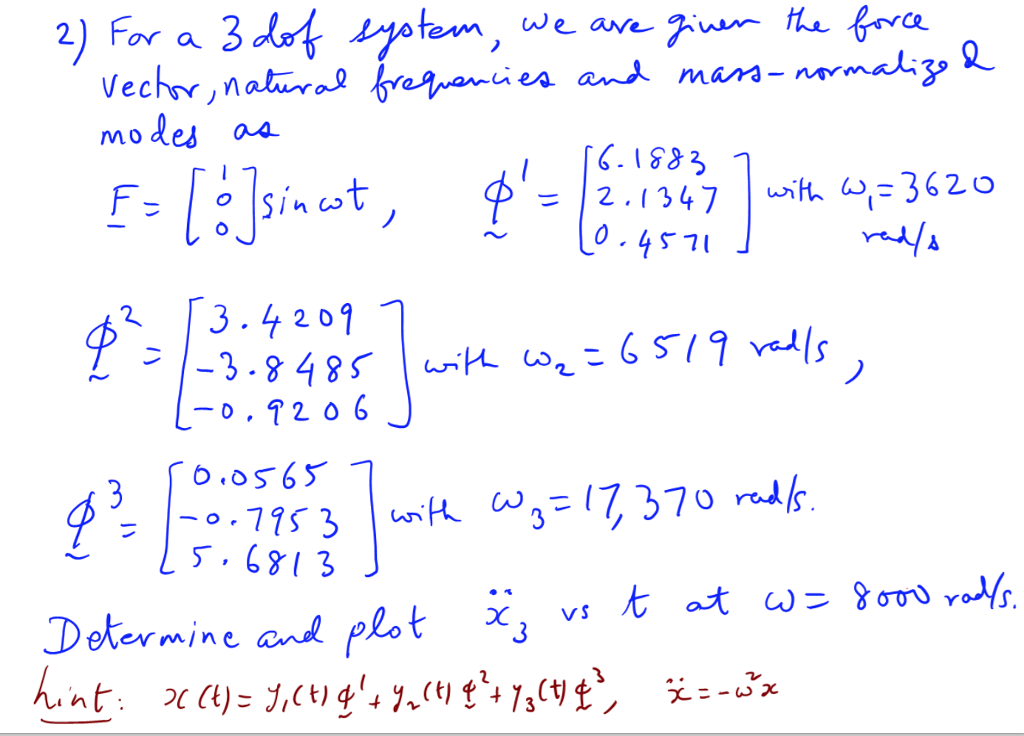 2) For a 3 dof system, we are given the force
vector, natural frequencies and mass-normalized
modes as
F = [1 0 0] sin ωt, ϕ¹ = [6.1883 2.1347 0.4571] with ω₁ = 3620 rad/s
ϕ² = [3.4209 -3.8485 -0.9206] with ω₂ = 6519 rad/s,
ϕ³ = [0.0565 -0.7953 5.6813] with ω₃ = 17,370 rad/s.
Determine and plot ẍ₃ vs t at ω = 8000 rad/s.
hint: x(t) = y₁(t) ϕ¹ + y₂(t) ϕ² + y₃(t) ϕ³, ẍ = -ω²x